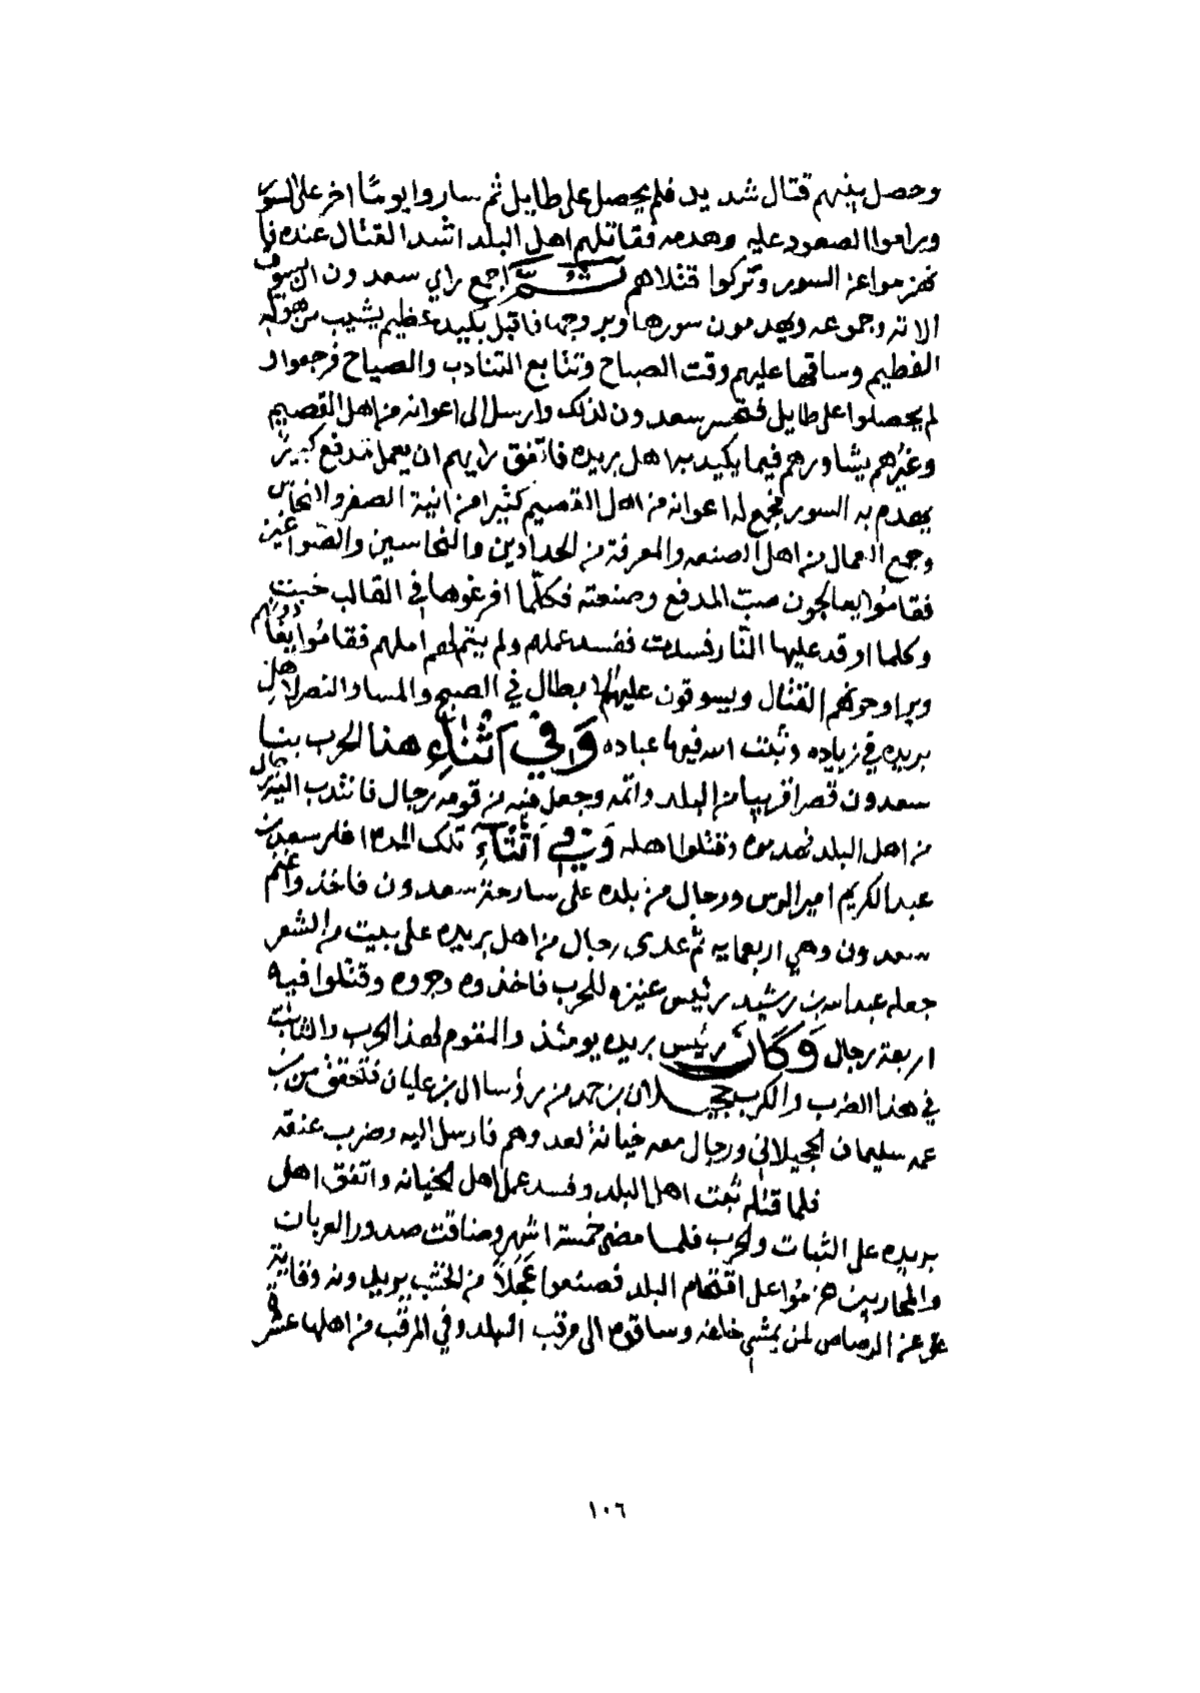 وحصل بينهم قتال شديد فلم يحصل على طايل ثم ساروا يومًا اخر على السور
وراموا الصعود عليه وهدمه فقاتلهم اهل البلد اشد القتال عنده فا
نهزموا عن السور وتركوا قتلاهم ثُمَّ اجمع راي سعدون ان يسوق
الاته وجموعه ويهدمون سورها وبروجها فاقبل بكيد عظيم يشيب من هوله
الفطيم وساقها عليهم وقت الصباح وتتابع التنادب والصياح فرجعوا و
لم يحصلوا على طايل سعدون لذلك وارسل الى اعوانه من اهل القصيم
وغيرُهم يشاورهم فيما يكيد به اهل بريده فاتّفق رايهم ان يعمل مدفع كبير
يهدم به السور فجمع له اعوانه من اهل القصيم كثيرا من انية الصفر والانحاس
وجمع العمال من اهل الصنعه والمعرفة من الحدادين والنحاسين والصّواغين
فقامُوا يعالجون صبّ المدفع وصنعته فكلّما افرغوها في القالب خبنت
وكلما اوقد عليها النّار فسدت ففسد عملهم ولم يتم لهم املهم فقامُوا يغادونهم
ويراوحونهم القتال ويسوقون عليهم الابطال في الصبح والمسا والنصر لاهل
بريده في زياده وثبت الله فيها عباده وَفي اَثْناءِ هذا الحرب بنا
سعدون قصرا قريبا من البلد واتمه وجعل فيه من قومه رجال فانتدب اليه رجال
من اهل البلد فهدموه وقتلوا اهله وَفي اَثْنَآءِ تلك المده اغار سعدون بن
عبد الكريم امير الرس ورجال من بلده على سارحة سعدون فاخذ واغنم
سعدون وهي اربعمايه ثم عدى رجال من اهل بريده على بيت من الشعر
جعله عبدالله بن رشيد رئيس عنيزه للحرب فاخذوه وجروه وقتلوا فيه
اربعة رجال وَكَانَ رئيس بريده يومئذ والمقوم لهذا الحرب والثابت
في هذا الضرب والكرب حجيلان بن حمد من رؤسا ال بن عليان فتحقق من بن
عمه سليمان الحجيلاني ورجال معه خيانة لعدوهم فارسل اليه وضرب عنقه
فلما قتلهم ثبت اهل البلد وفسد عمل اهل الخيانه واتفق اهل
بريده على الثبات والحرب فلما مضى خمسة اشهر وضاقت صدور العربان
والمحاربين عزمُوا على اقتحام البلد فصنعوا عَجَلاً من الخشب يريدونه وقاية
عن الرصاص لمن يمشي خلفه وساقوه الى مرقب البلد وفي المرقب من اهلها عشره
١٠٦